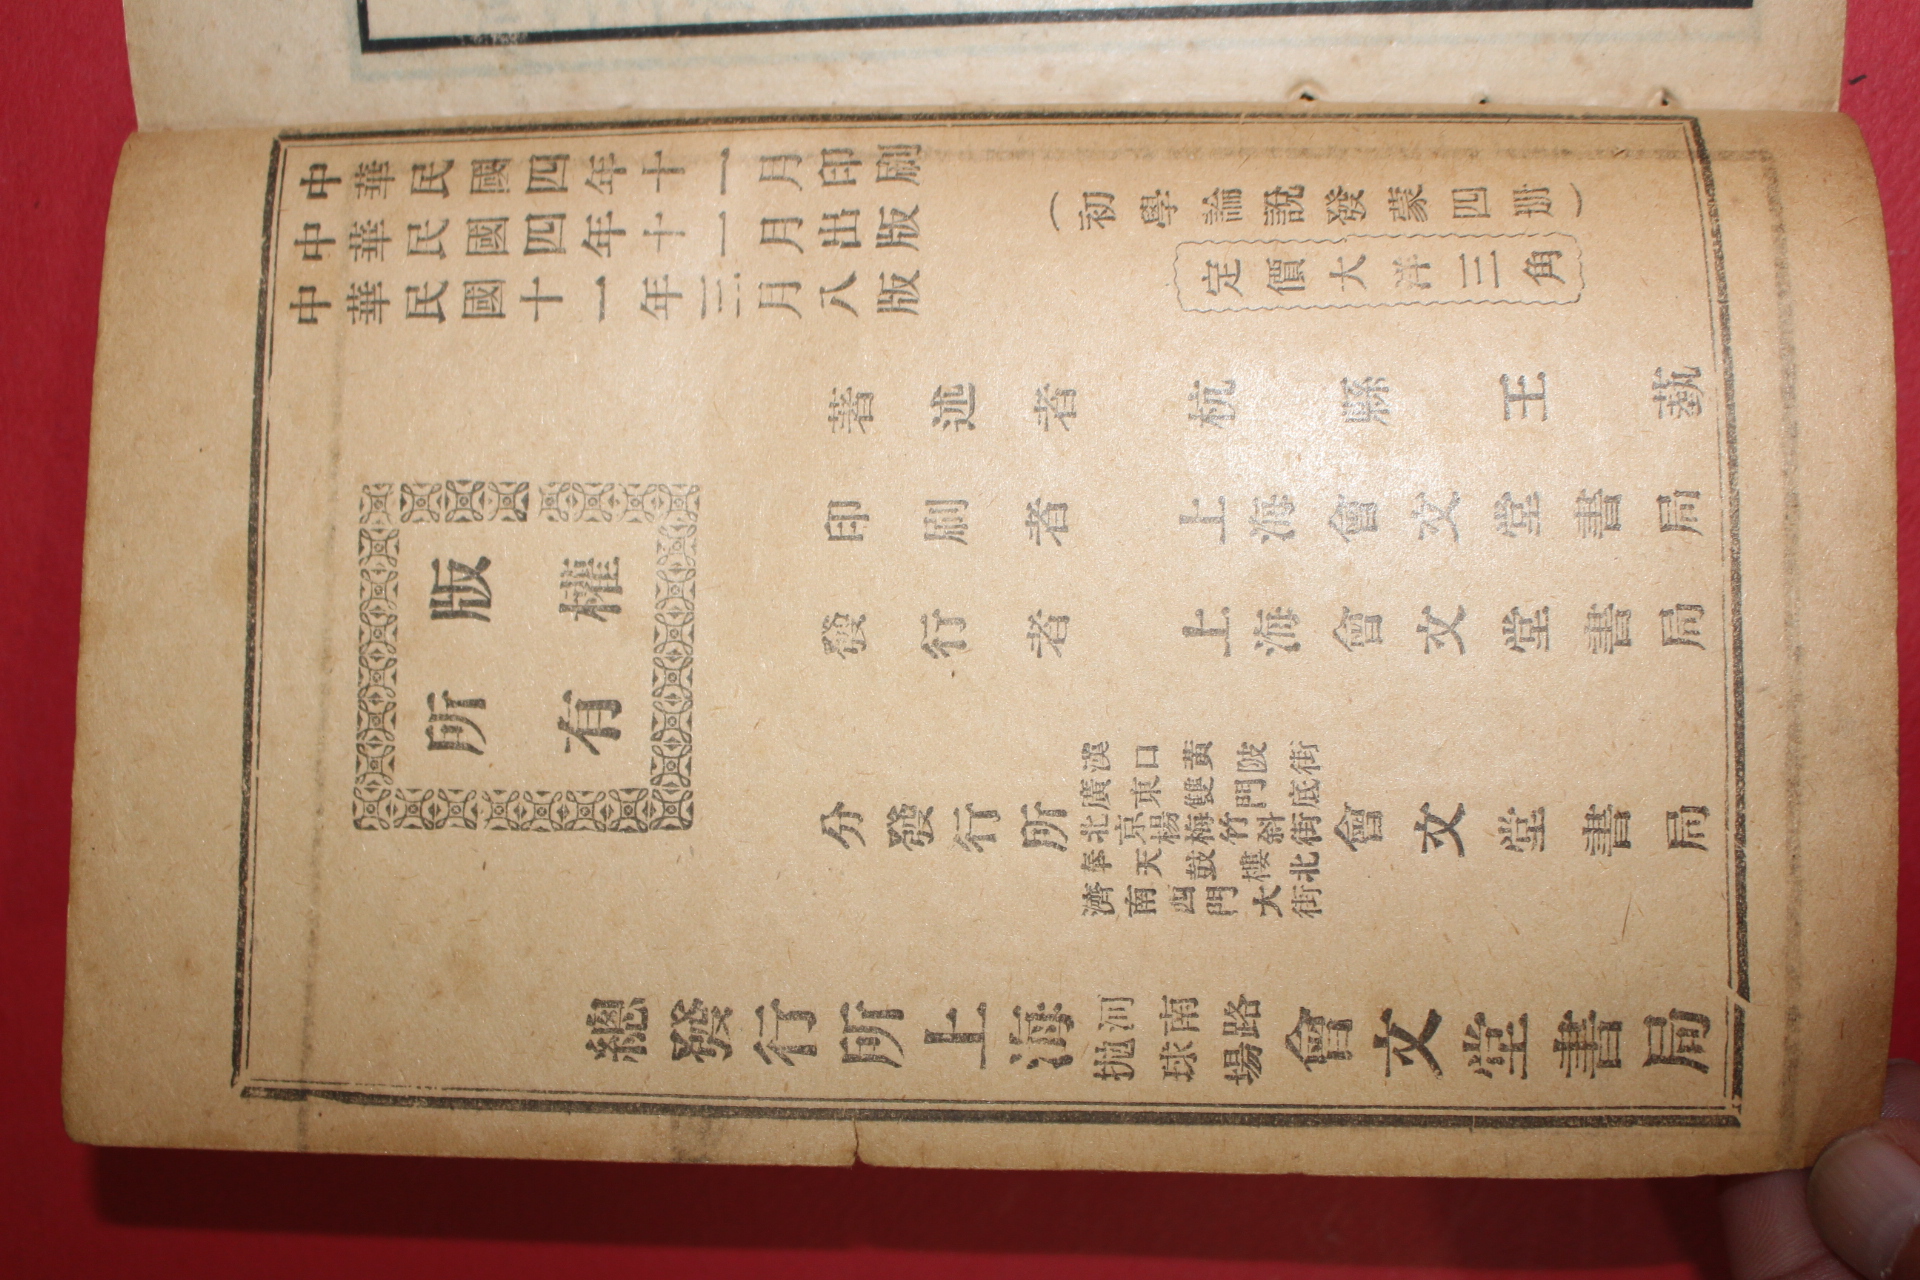 中華民國四年十一月印刷
中華民國四年十一月出版
中華民國十一年三月八版
(初學論說發蒙四册)
定價大洋三角
著述者 杭縣王藝
印刷者 上海會文堂書局
發行者 上海會文堂書局
版權
所有
分發行所
漢口黃陂街
廣東雙門底
北京楊梅竹斜街
奉天鼓樓北
濟南西門大街
會文堂書局
總發行所上海
河南路
拋球場
會文堂書局